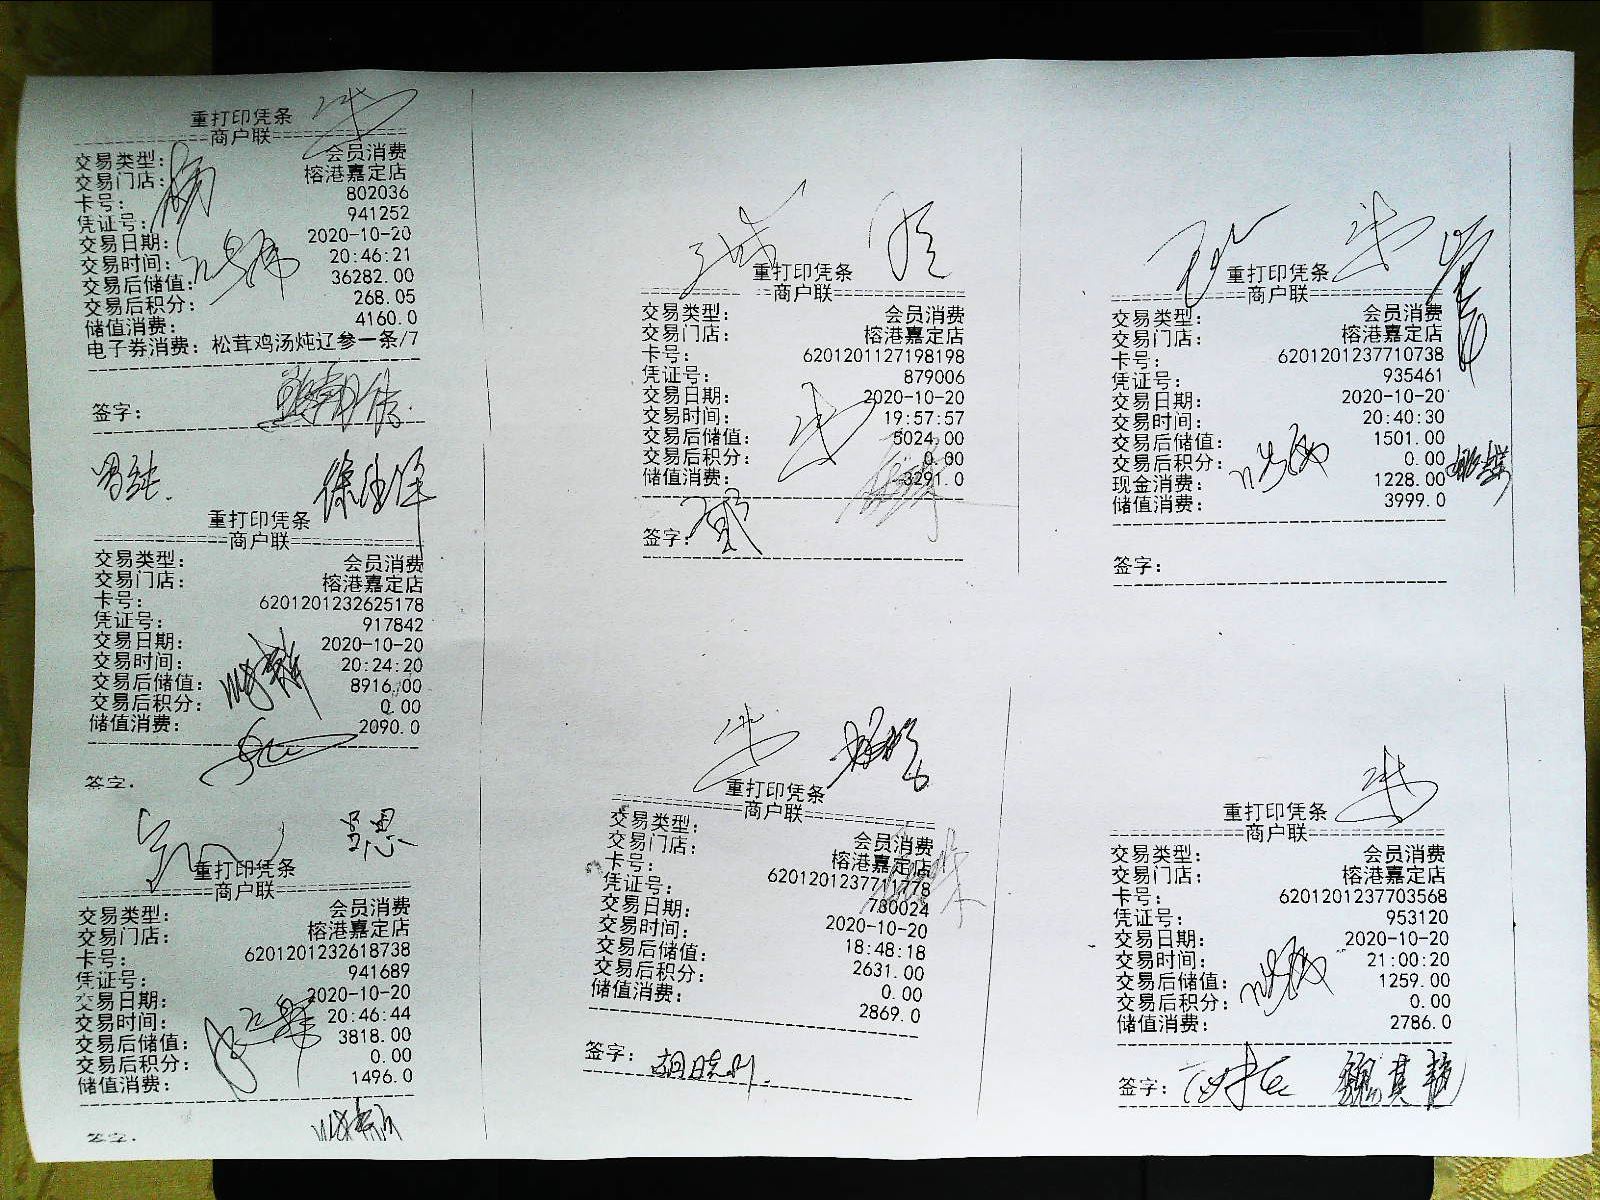 重打印凭条
商户联
交易类型： 会员消费
交易门店： 榕港嘉定店
卡号： 802036
凭证号： 941252
交易日期： 2020-10-20
交易时间： 20:46:21
交易后储值： 36282.00
交易后积分： 268.05
储值消费： 4160.0
电子券消费：松茸鸡汤炖辽参一条/7
签字：
重打印凭条
商户联
交易类型： 会员消费
交易门店： 榕港嘉定店
卡号： 6201201232625178
凭证号： 917842
交易日期： 2020-10-20
交易时间： 20:24:20
交易后储值： 8916.00
交易后积分： 0.00
储值消费： 2090.0
签字：
吕思
重打印凭条
商户联
交易类型： 会员消费
交易门店： 榕港嘉定店
卡号： 6201201232618738
凭证号： 941689
交易日期： 2020-10-20
交易时间： 20:46:44
交易后储值： 3818.00
交易后积分： 0.00
储值消费： 1496.0
签字：
重打印凭条
商户联
交易类型： 会员消费
交易门店： 榕港嘉定店
卡号： 6201201127198198
凭证号： 879006
交易日期： 2020-10-20
交易时间： 19:57:57
交易后储值： 5024.00
交易后积分： 0.00
储值消费： 3291.0
签字：
重打印凭条
商户联
交易类型： 会员消费
交易门店： 榕港嘉定店
卡号： 6201201237711778
凭证号： 780024
交易日期： 2020-10-20
交易时间： 18:48:18
交易后储值： 2631.00
交易后积分： 0.00
储值消费： 2869.0
签字： 胡晓刚
重打印凭条
商户联
交易类型： 会员消费
交易门店： 榕港嘉定店
卡号： 6201201237710738
凭证号： 935461
交易日期： 2020-10-20
交易时间： 20:40:30
交易后储值： 1501.00
交易后积分： 0.00
现金消费： 1228.00
储值消费： 3999.0
签字：
重打印凭条
商户联
交易类型： 会员消费
交易门店： 榕港嘉定店
卡号： 6201201237703568
凭证号： 953120
交易日期： 2020-10-20
交易时间： 21:00:20
交易后储值： 1259.00
交易后积分： 0.00
储值消费： 2786.0
签字：